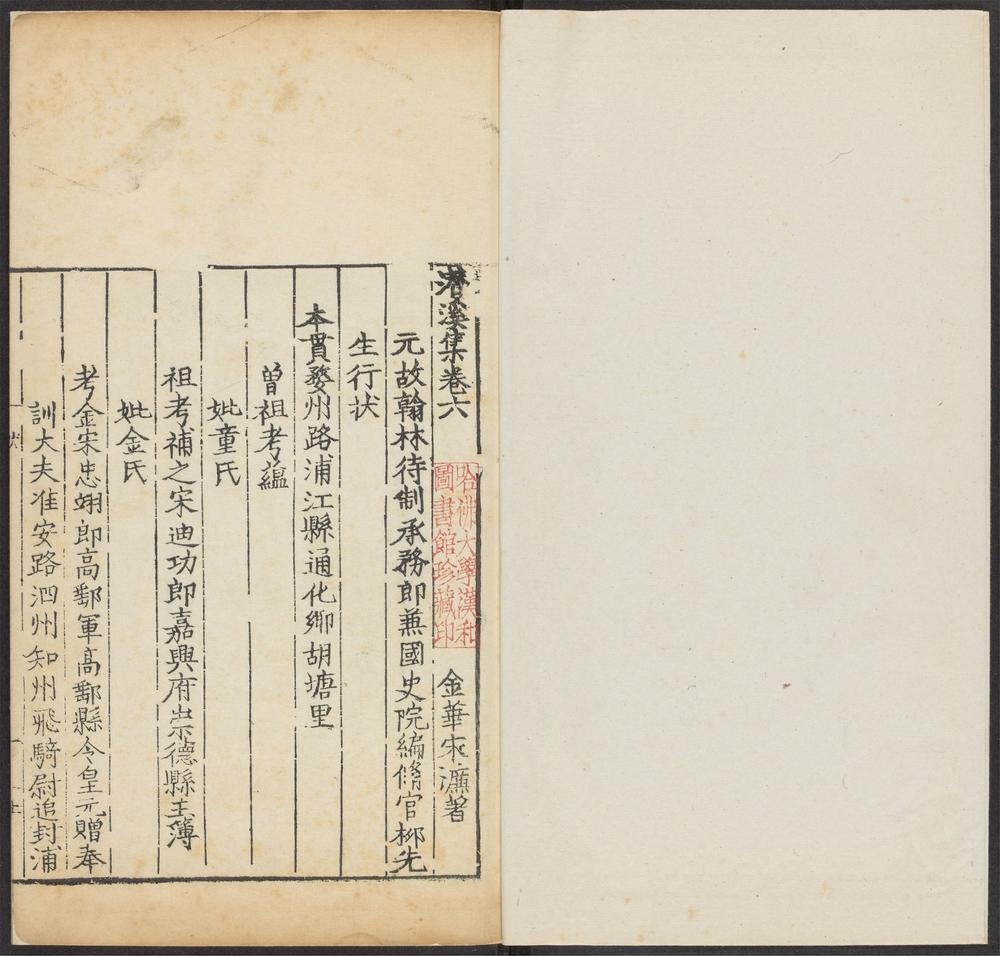 潛溪集卷六
金華宋濂著
哈佛大學漢和
圖書館珍藏印
元故翰林待制承務郎兼國史院編脩官柳先
生行狀
本貫婺州路浦江縣通化鄉胡塘里
曾祖考蘊
妣童氏
祖考補之宋迪功郎嘉興府崇德縣主簿
妣金氏
考金宋忠翊郎高郵軍高郵縣令皇元贈奉
訓大夫淮安路泗州知州飛騎尉追封浦